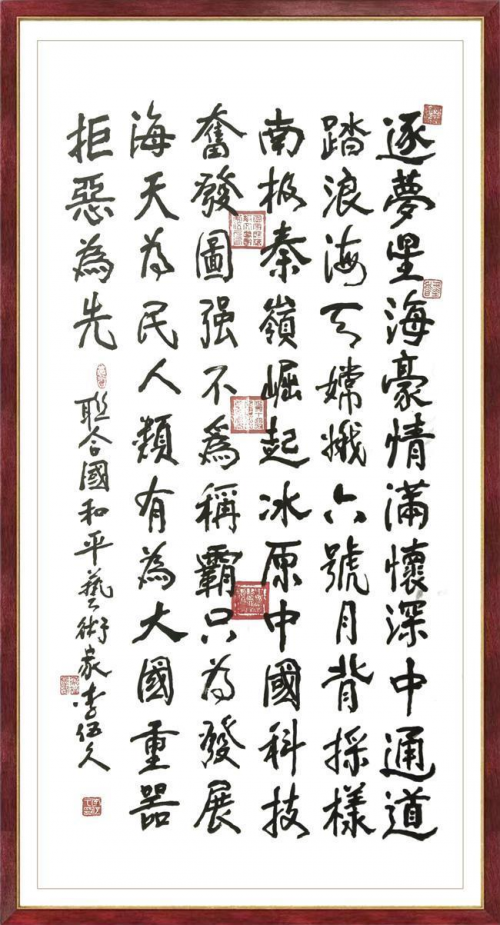 逐夢星海豪情滿懷深中通道
踏浪海天嫦娥六號月背採樣
南极秦嶺崛起冰原中國科技
奮發圖强不為稱霸只為發展
海天為民人類有為大國重器
拒惡為先
聯合國和平藝術家李伍久